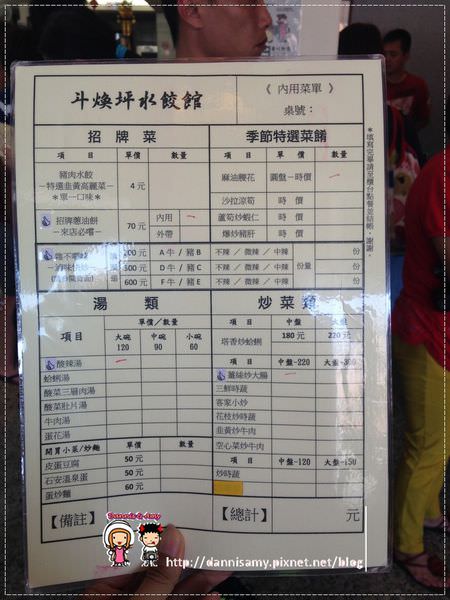 斗煥坪水餃館
《 內用菜單 》
桌號：
招 牌 菜
項 目 單價 數量
豬肉水餃
－特選韭黃高麗菜－
＊單一口味＊
4 元
招牌蔥油餅
－來店必嚐－
70 元
內用
外帶
200 元 A 牛／豬 B
500 元 D 牛／豬 E
600 元 F 牛／豬 E
季節特選菜餚
項 目 單價 數量
麻油腰花 圓盤－時價
沙拉涼筍 時 價
蘆筍炒蝦仁 時 價
爆炒豬肝 時 價
不辣 ／ 微辣 ／ 中辣 份
不辣 ／ 微辣 ／ 中辣 份量 份
不辣 ／ 微辣 ／ 中辣 份
＊填寫完畢請至櫃台點餐並結帳，謝謝。
湯 類
項目
單價／數量
大碗 120
中碗 90
小碗 60
酸辣湯
蛤蜊湯
酸菜三層肉湯
酸菜肚片湯
牛肉湯
蛋花湯
開胃小菜/炒麵 單價 數量
皮蛋豆腐 50 元
石安溫泉蛋 50 元
蛋炒麵 60 元
炒 菜 類
項 目 中盤 大盤
塔香炒蛤蜊 180 元 220 元
項 目 中盤-220 大盤-300
薑絲炒大腸
三鮮時蔬
客家小炒
花枝炒時蔬
韭黃炒牛肉
空心菜炒牛肉
項 目 中盤-120 大盤-150
炒時蔬
【備註】
【總計】 元
Dannis & Amy
http://dannisamy.pixnet.net/blog